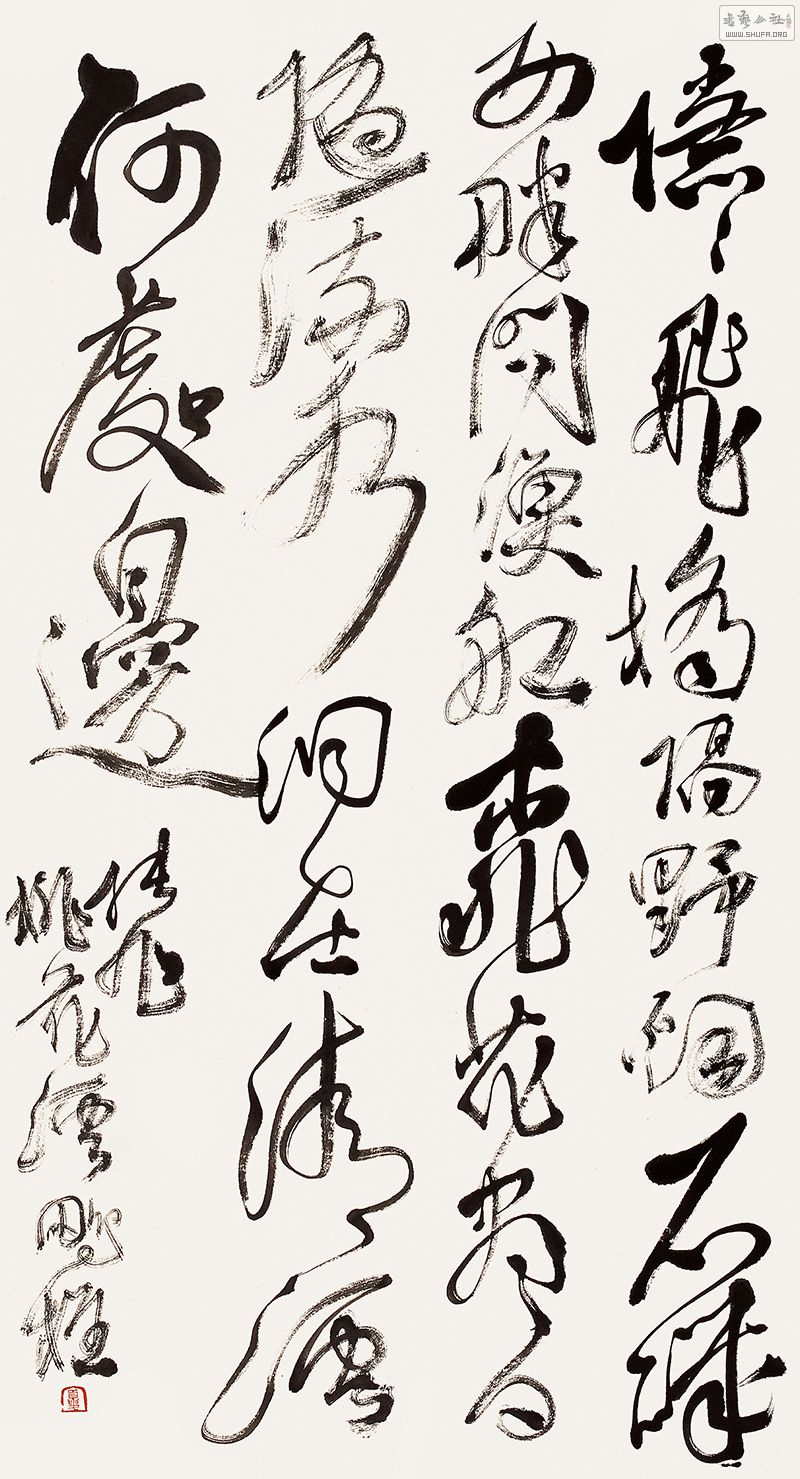 隱〻飛橋隔野烟石磯
西畔問漁船桃花盡日
隨流水洞在清溪
何處邊
張旭
桃花溪
書藝公社
WWW.SHUFA.ORG